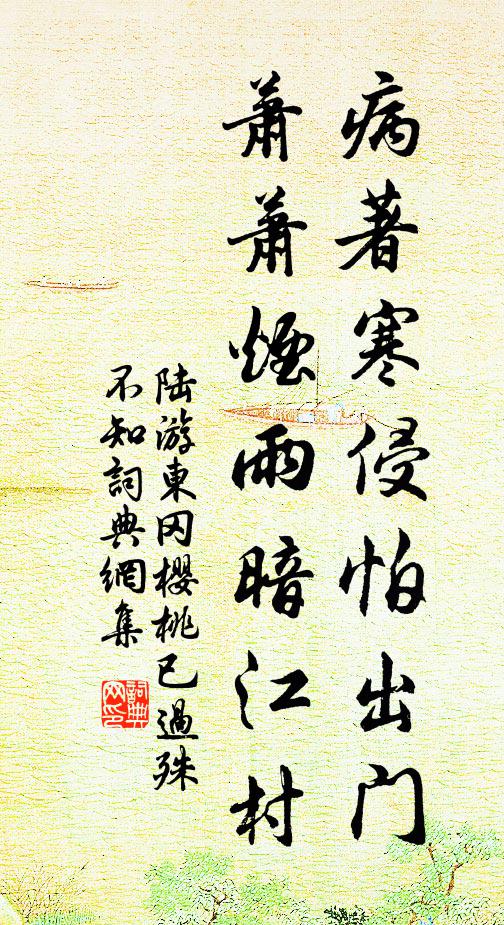 病著寒侵怕出门
萧萧煙雨暗江村
陆游東冈櫻桃已過殊
不知詞典網集
詞典网印